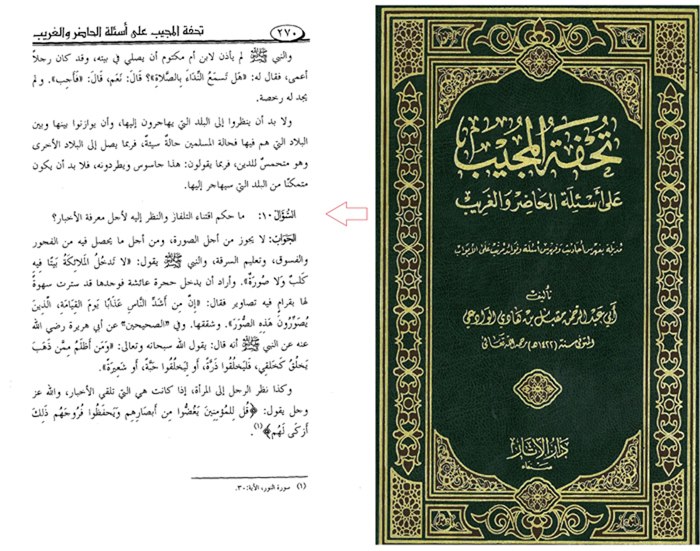 ٢٧٠
تحفة المجيب على أسئلة الحاضر والغريب
والنبي ﷺ لم يأذن لابن أم مكتوم أن يصلي في بيته، وقد كان رجلاً
أعمى، فقال له: «هَل تَسمَعُ النِّدَاءَ بِالصَّلَاةِ؟ قَالَ: نَعَم، قَالَ: «فَأَجِب». ولم
يجد له رخصة.
ولا بد أن ينظروا إلى البلد التي يهاجرون إليها، وأن يوازنوا بينها وبين
البلاد التي هم فيها فحالة المسلمين حالةٌ سيئةٌ، فربما يصل إلى البلاد الأخرى
وهو متحمسٌ للدين، فربما يقولون: هذا جاسوس ويطردونه، فلا بد أن يكون
متمكنًا من البلد التي سيهاجر إليها.
السُّؤَالُ ١٠: ما حكم اقتناء التلفاز والنظر إليه لأجل معرفة الأخبار؟
الجَوَابُ: لا يجوز من أجل الصورة، ومن أجل ما يحصل فيه من الفجور
والفسوق، وتعليم السرقة، والنبي ﷺ يقول: «لَا تَدخُلُ المَلَائِكَةُ بَيتًا فِيهِ
كَلبٌ وَلَا صُورَةٌ». وأراد أن يدخل حجرة عائشة فوجدها قد سترت سهوةً
لها بقرامٍ فيه تصاوير فقال: «إِنَّ مِن أَشَدِّ النَّاسِ عَذَابًا يَومَ القِيَامَةِ، الَّذِينَ
يُصَوِّرُونَ هَذِهِ الصُّوَرَ». وشققها. وفي «الصحيحين» عن أبي هريرة رضي الله
عنه عن النبي ﷺ أنه قال: يقول الله سبحانه وتعالى: «وَمَن أَظلَمُ مِمَّن ذَهَبَ
يَخلُقُ كَخَلقِي، فَليَخلُقُوا ذَرَّةً، أَو لِيَخلُقُوا حَبَّةً، أَو شَعِيرَةً».
وكذا نظر الرجل إلى المرأة، إذا كانت هي التي تلقي الأخبار، والله عز
وجل يقول: ﴿قُل لِلمُؤمِنِينَ يَغُضُّوا مِن أَبصَارِهِم وَيَحفَظُوا فُرُوجَهُم ذَلِكَ
أَزكَى لَهُم﴾(١).
(١) سورة النور، الآية: ٣٠.
تحفة المجيب
على أسئلة الحاضر والغريب
مذيلة بفهرس أحاديث وفهرس أسئلة وفوائد مرتبة على الأبواب
تأليف
أبي عبد الرحمن مقبل بن هادي الوادعي
المتوفى سنة (١٤٢٢)هـ رحمه الله تعالى
دار الآثار
صنعاء